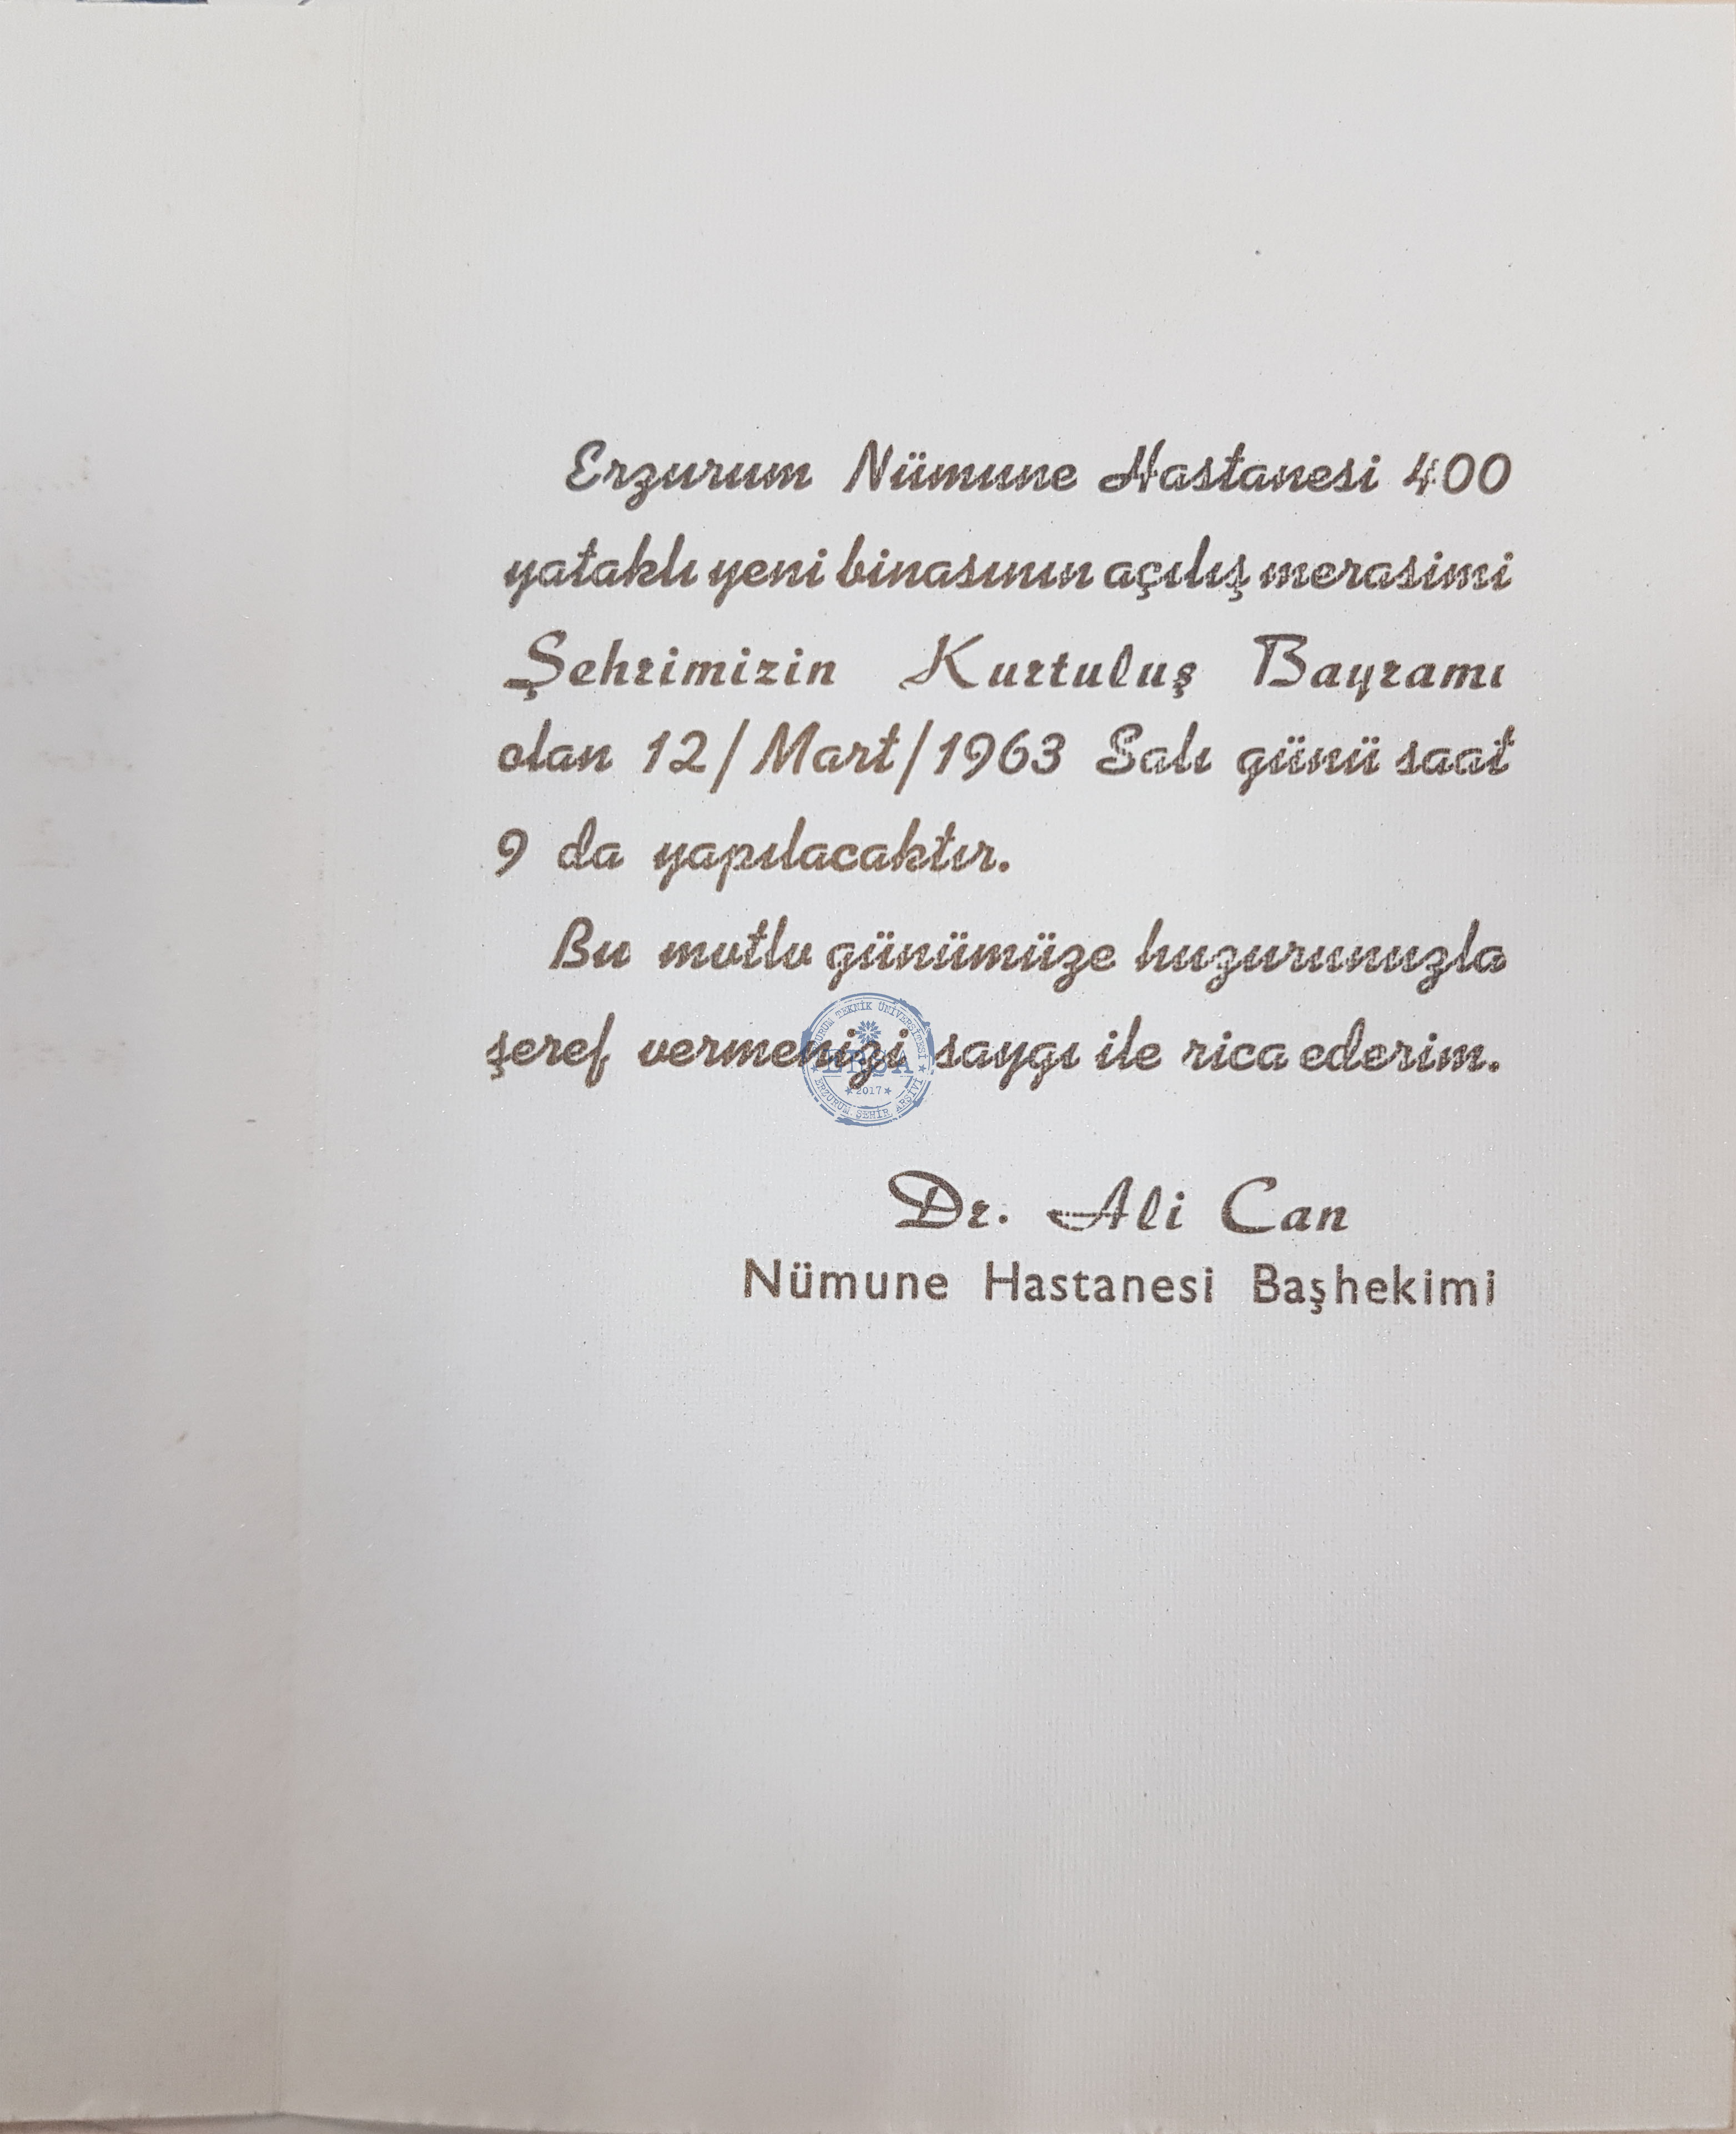 Erzurum Nümune Hastanesi 400
yataklı yeni binasının açılış merasimi
Şehrimizin Kurtuluş Bayramı
olan 12/Mart/1963 Salı günü saat
9 da yapılacaktır.
Bu mutlu günümüze huzurunuzla
şeref vermenizi saygı ile rica ederim.
Dr. Ali Can
Nümune Hastanesi Başhekimi
ERZURUM TEKNİK ÜNİVERSİTESİ
2017
ERZURUM ŞEHİR ARŞİVİ